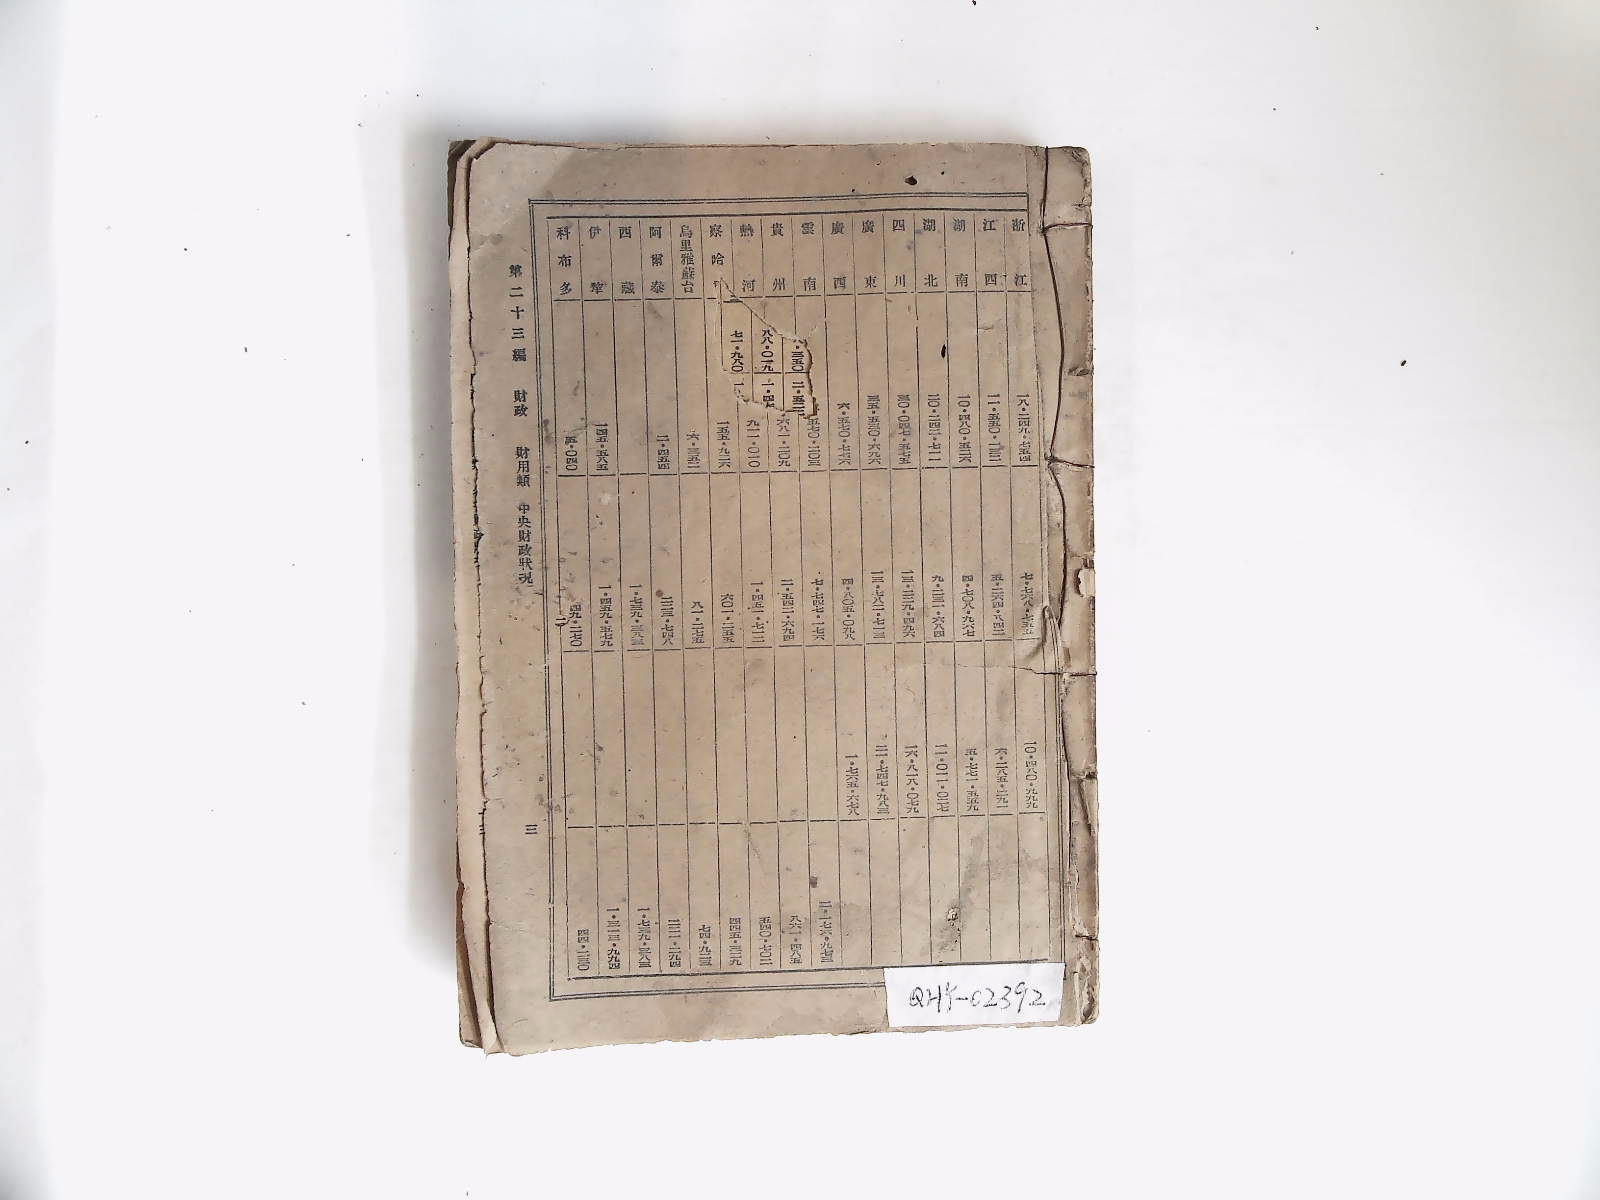 浙江 一八·二四九·七五四 七·七六八·七五五 一〇·四八〇·九九九
江西 一一·五五〇·一三二 五·二六四·八四一 六·二八五·二九一
湖南 一〇·四八〇·五二六 四·七〇八·九六七 五·七七一·五五九
湖北 二〇·二四二·七一一 九·二三一·六八四 一一·〇一一·〇二七
四川 三〇·〇四七·五七五 一三·二二九·四九六 一六·八一八·〇七九
廣東 三五·五三〇·六九六 一三·七八二·七一三 二一·七四七·九八三
廣西 六·五七〇·七七六 四·八〇五·〇九八 一·七六五·六七八
雲南 五七〇·二〇三 七·七四七·一七六 二·一七六·九七三
貴州 六八一·二〇九 二·五四二·六九四 八六一·四八五
熱河 九一一·〇一〇 一·四五一·七一二 五四〇·七〇二
察哈 一五五·九二六 六〇一·二五五 四四五·三二九
烏里雅蘇台 六·三五二 八一·二七五 七四·九二三
阿爾泰 二·四五四 二二三·七四八 二二一·二九四
西藏 一·七三九·三八三 一·七三九·三八三
伊犂 一四五·五八五 一·四五九·五七九 一·三一三·九九四
科布多 五·〇四〇 四九·二七〇 四四·二三〇
八·三五〇 二·五二
八八·〇一九 一·四
七一·九八〇 一
第二十三編 財政 財用類 中央財政狀況 三
QHK-02392